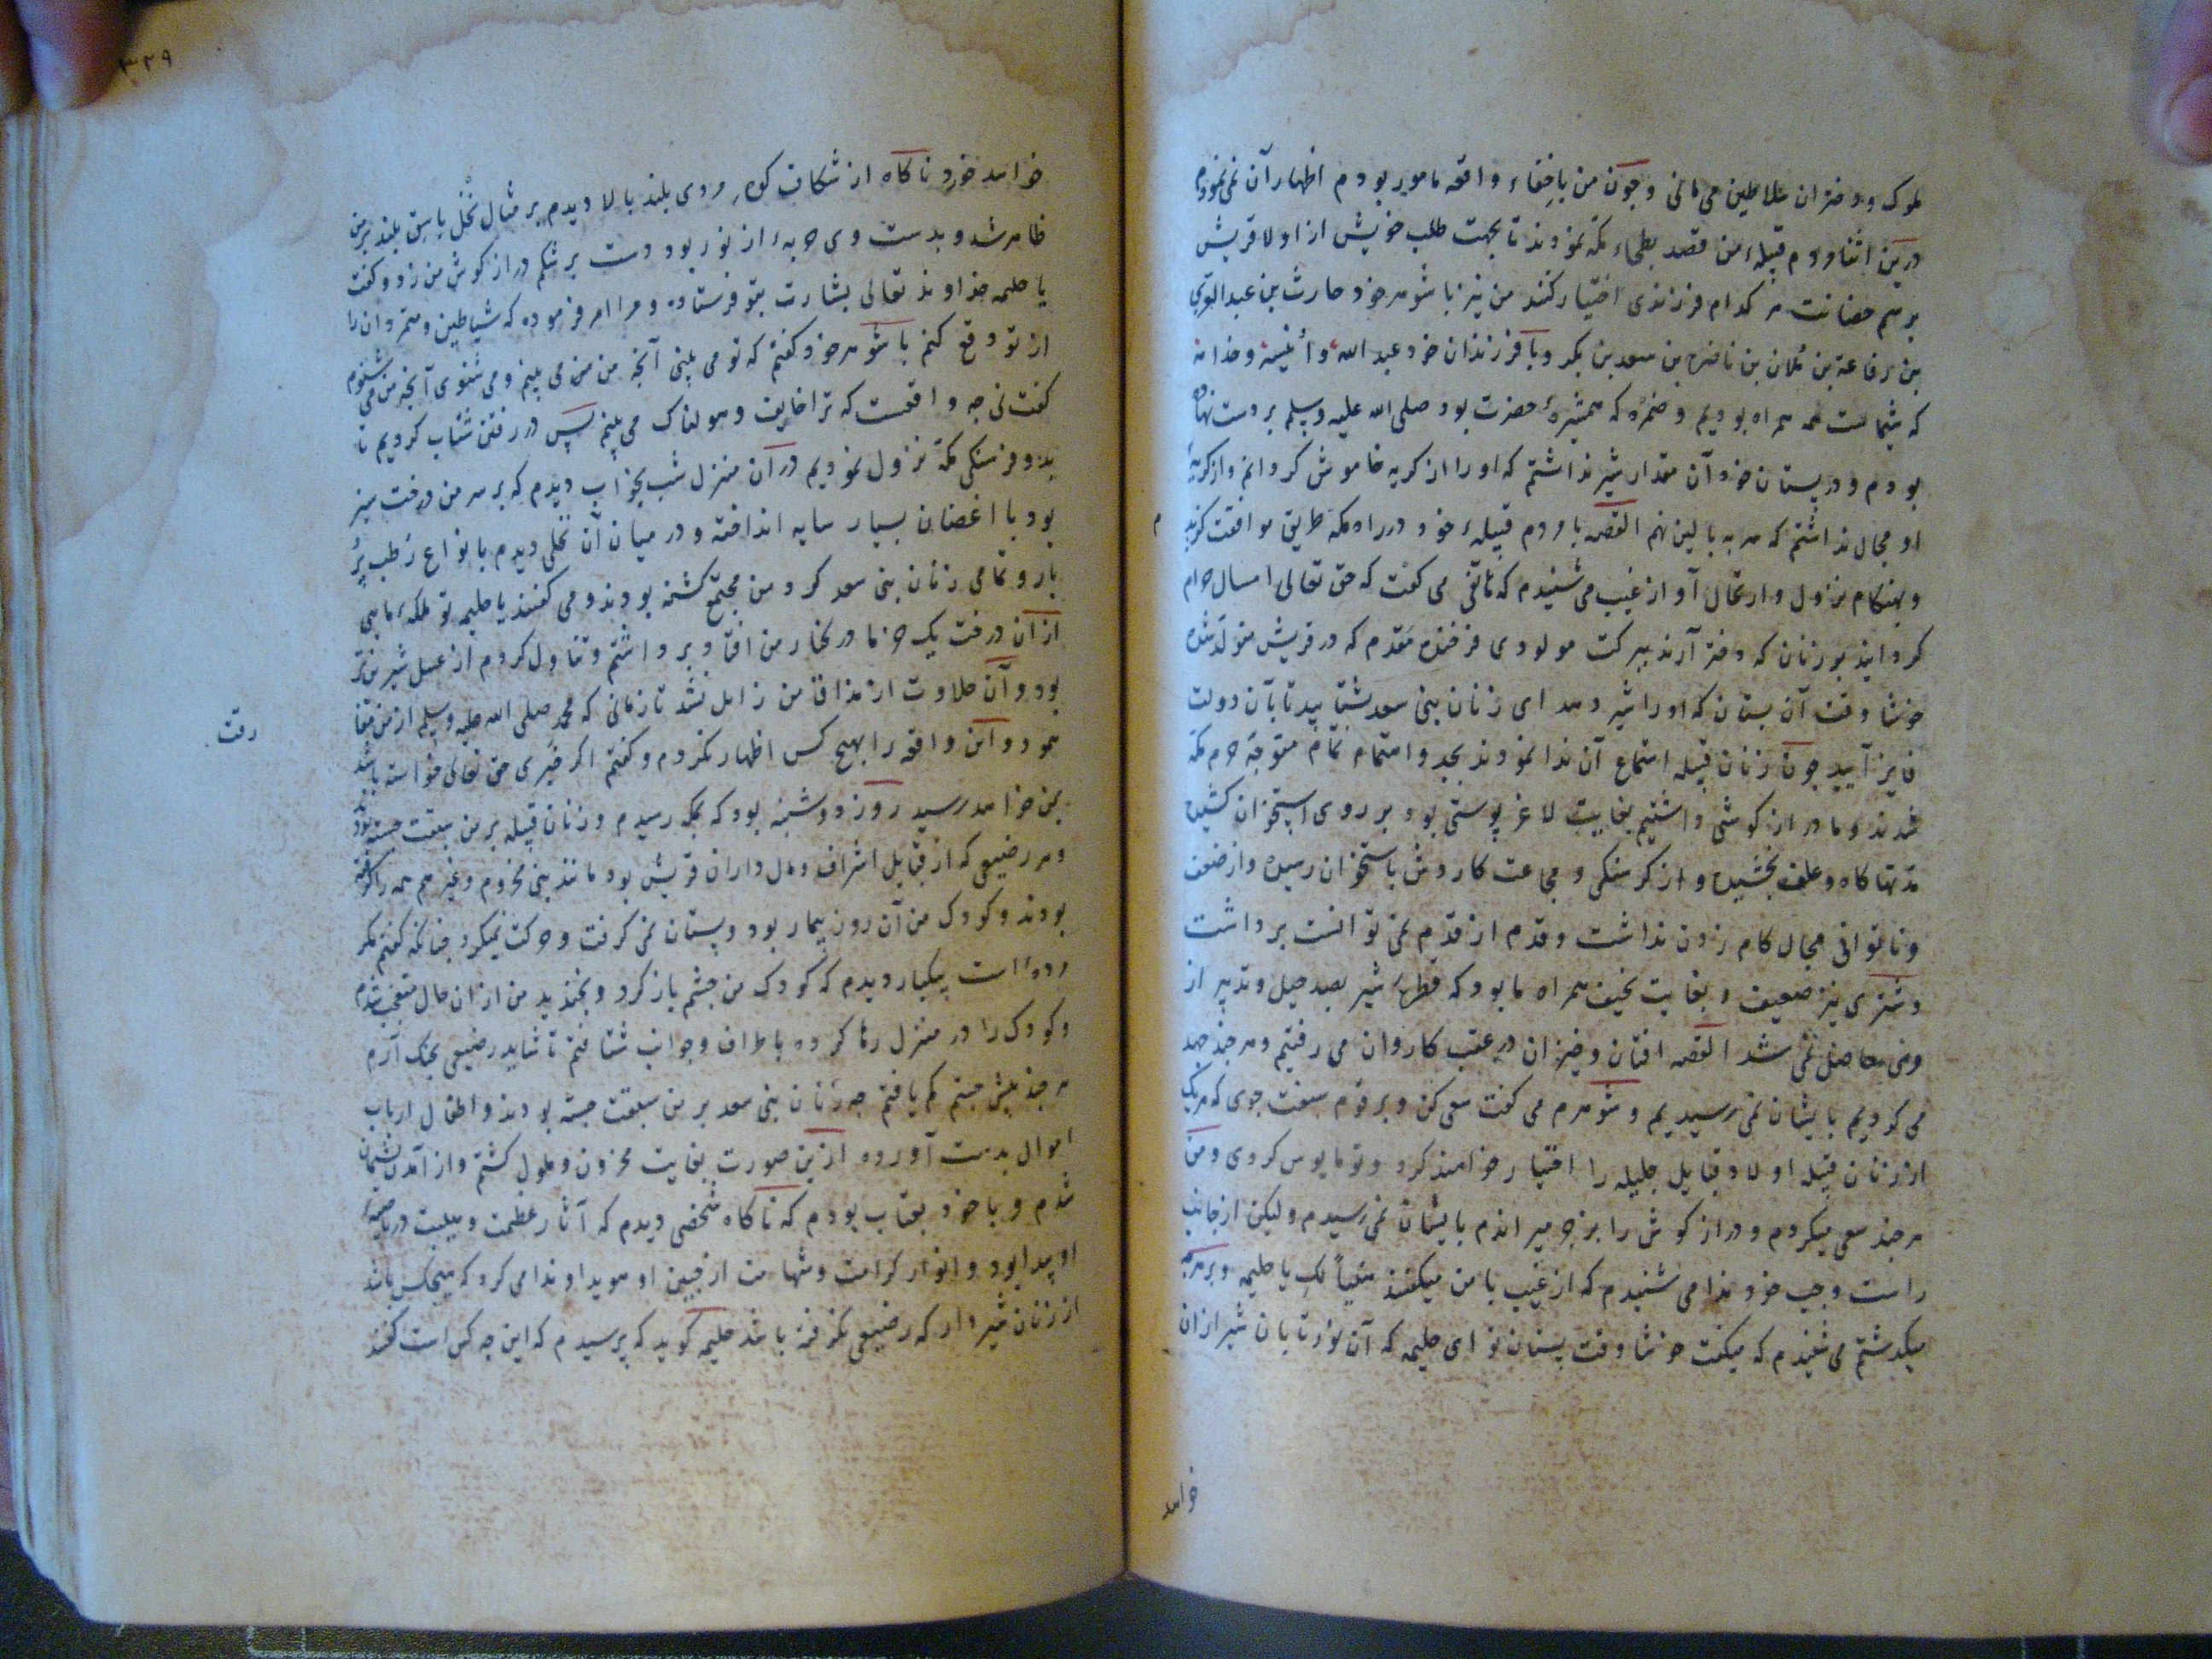 ملوک و دختران سلاطین می مانی و چون من باخفاء واقعه مامور بودم اظهار آن نمی نمودم
درین اثنا مردم قبیله من قصد بطحاء مکه نمودند تا بجهت طلب خویش از اولاد قریش
برسم حضانت هر کدام فرزندی اختیار کنند من نیز با شوهر خود حارث بن عبد العزی
بن رفاعة بن ملان بن ناضره بن سعد بن بکر و با فرزندان خود عبد الله و انیسه و خدامه
که شیماست همه همراه بودیم و ضمره که همشیرهٔ حضرت بود صلی الله علیه وسلم بر دست نهاده
بودم و در پستان خود آن مقدار شیر نداشتم که او را از کریه خاموش کردانم و از کریهٔ
او مجال نداشتم که سر به بالین نهم القصه با مردم قبیلهٔ خود در راه مکه طریق موافقت کزیدم
و بهنکام نزول و ارتحال آواز غیب می شنیدم که هاتفی می کفت که حق تعالی امسال حرام
کردانید بر زنان که دختر آرند ببرکت مولودی فرخنده مقدم که در قریش متولد شده
خوشا وقت آن پستان که او را شیر دهد ای زنان بنی سعد بشتابید تا بآن دولت
فایز آیید چون زنان قبیله استماع آن ندا نمودند بجد و اهتمام تمام متوجه حرم مکه
شدند و ما دراز کوشی داشتیم بغایت لاغر پوستی بود بر روی استخوان کشیده
مدتها کاه و علف نچشیده و از کرسنکی و مجاعت کاردش باستخوان رسیده و از ضعف
و ناتوانی مجال کام زدن نداشت و قدم از قدم نمی توانست برداشت
و شتری نیز ضعیف و بغایت نحیف همراه ما بود که قطرهٔ شیر بصد حیل و تدبیر از
وی حاصل نمی شد القصه افتان و خیزان در عقب کاروان می رفتیم و هر چند جهد
می کردیم بایشان نمی رسیدیم و شوهرم می کفت سعی کن و بر قوم سبقت جوی که هر یک
از زنان قبیله اولاد قبایل جلیله را اختیار خواهند کرد و تو مایوس کردی و من
هر چند سعی میکردم و دراز کوش را بزجر میراندم بایشان نمی رسیدم و لیکن از جانب
راست و چپ خود ندا می شنیدم که از غیب با من میکفتند هنیئاً لک یا حلیمه و بر هر چه
میکذشتم می شنیدم که میکفت خوشا وقت پستان تو ای حلیمه که آن نور تابان شیر از آن
خواهد
۳۲۹
خواهد خورد ناکاه از شکاف کوه مردی بلند بالا دیدم بر مثال نخل باسق بلند بر من
ظاهر شد و بدست وی حربهٔ از نور بود دست بر شکم دراز کوش من زد و کفت
یا حلیمه خداوند تعالی بشارت بتو فرستاده و مرا امر فرموده که شیاطین و متمردان را
از تو دفع کنم با شوهر خود کفتم که تو می بینی آنچه من می بینم و می شنوی آنچه من می شنوم
کفت نی چه واقعست که ترا خایف و هولناک می بینم پس در رفتن شتاب کردیم تا
بدو فرسنکی مکه نزول نمودیم در آن منزل شب بخواب دیدم که بر سر من درخت سبز
بود با اغصان بسیار سایه انداخته و در میان آن نخلی دیدم بانواع رطب پر
بار و تمامی زنان بنی سعد کرد من مجتمع کشته بودند و می کفتند یا حلیمه تو ملکهٔ مایی
از آن درخت یک خرما در کنار من افتاد برداشتم و تناول کردم از عسل شیرین تر
بود و آن حلاوت از مذاق من زایل نشد تا زمانی که محمد صلی الله علیه وسلم از من مفا
رقت
نمود و این واقعه را بهیچ کس اظهار نکردم و کفتم اکر خیری حق تعالی خواسته باشد
بمن خواهد رسید روز دوشنبه بود که بمکه رسیدم و زنان قبیله بر من سبقت جسته بودند
و هر رضیعی که از قبایل اشراف و مال داران قریش بود مانند بنی مخزوم و غیرهم همه را کرفته
بودند و کودک من آن روز بیمار بود و پستان نمی کرفت و حرکت نمیکرد چنانکه کفتم مکر
مرده است بیکبار دیدم که کودک من چشم باز کرد و بخندید من از آن حال متعجب شدم
و کودک را در منزل رها کرده باطراف و جوانب شتافتم تا شاید رضیعی بچنک آرم
هر چند بیش جستم کم یافتم چه زنان بنی سعد بر من سبقت جسته بودند و اطفال ارباب
اموال بدست آورده ازین صورت بغایت محزون و ملول کشتم و از آمدن پشیمان
شدم و با خود بعتاب بودم که ناکاه شخصی دیدم که آثار عظمت و هیبت در ناصیهٔ
او پیدا بود و انوار کرامت و شهامت از جبین او هویدا و ندا می کرد که هیچکس باشد
از زنان شیردار که رضیعی نکرفته باشد حلیمه کوید که پرسیدم که این چه کس است کفتند